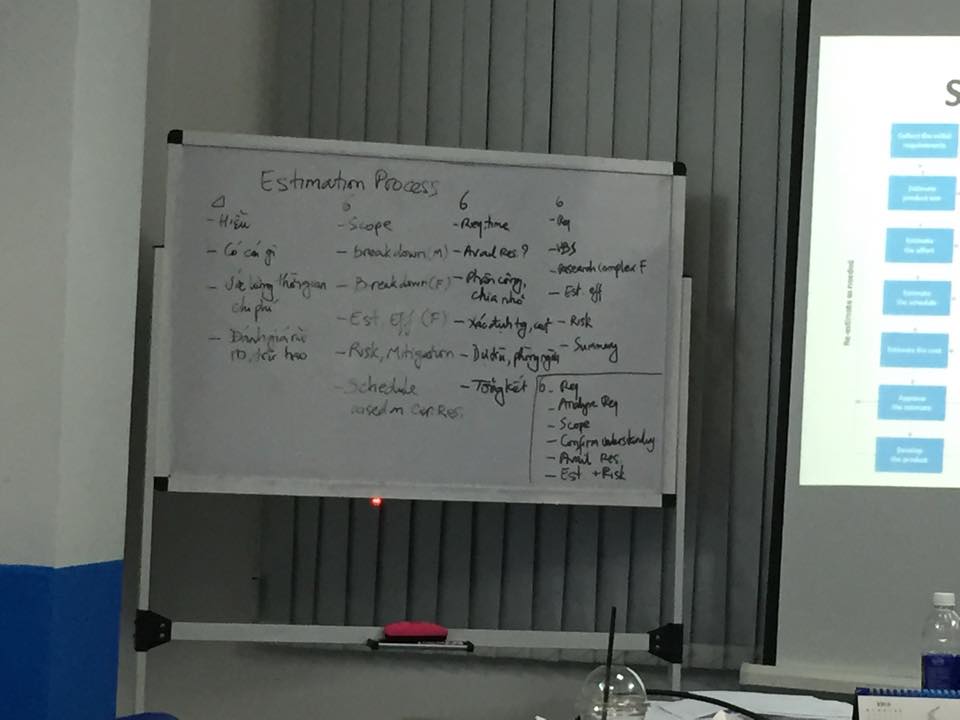 Estimation Process
4
- Hiểu
- Có cái gì
- Ước lượng thời gian
chi phí
- Đánh giá rủi
ro, trừ hao
6
- Scope
- Breakdown (M)
- Breakdown (F)
- Est. Eff (F)
- Risk, Mitigation
- Schedule
based on Cur Res.
6
- Req time
- Avail Res.?
- Phân công,
chia nhỏ
- Xác định tg, cost
- Dự trù, phòng ngừa
- Tổng kết
6
- Req
- WBS
- Research complex F
- Est. eff
- Risk
- Summary
6
- Req
- Analyze Req
- Scope
- Confirm understanding
- Avail Res.
- Est + Risk
S
Re-estimate as needed
Collect the initial
requirements
Estimate
product size
Estimate
the effort
Estimate
the schedule
Estimate the cost
Approve
the estimate
Develop
the product